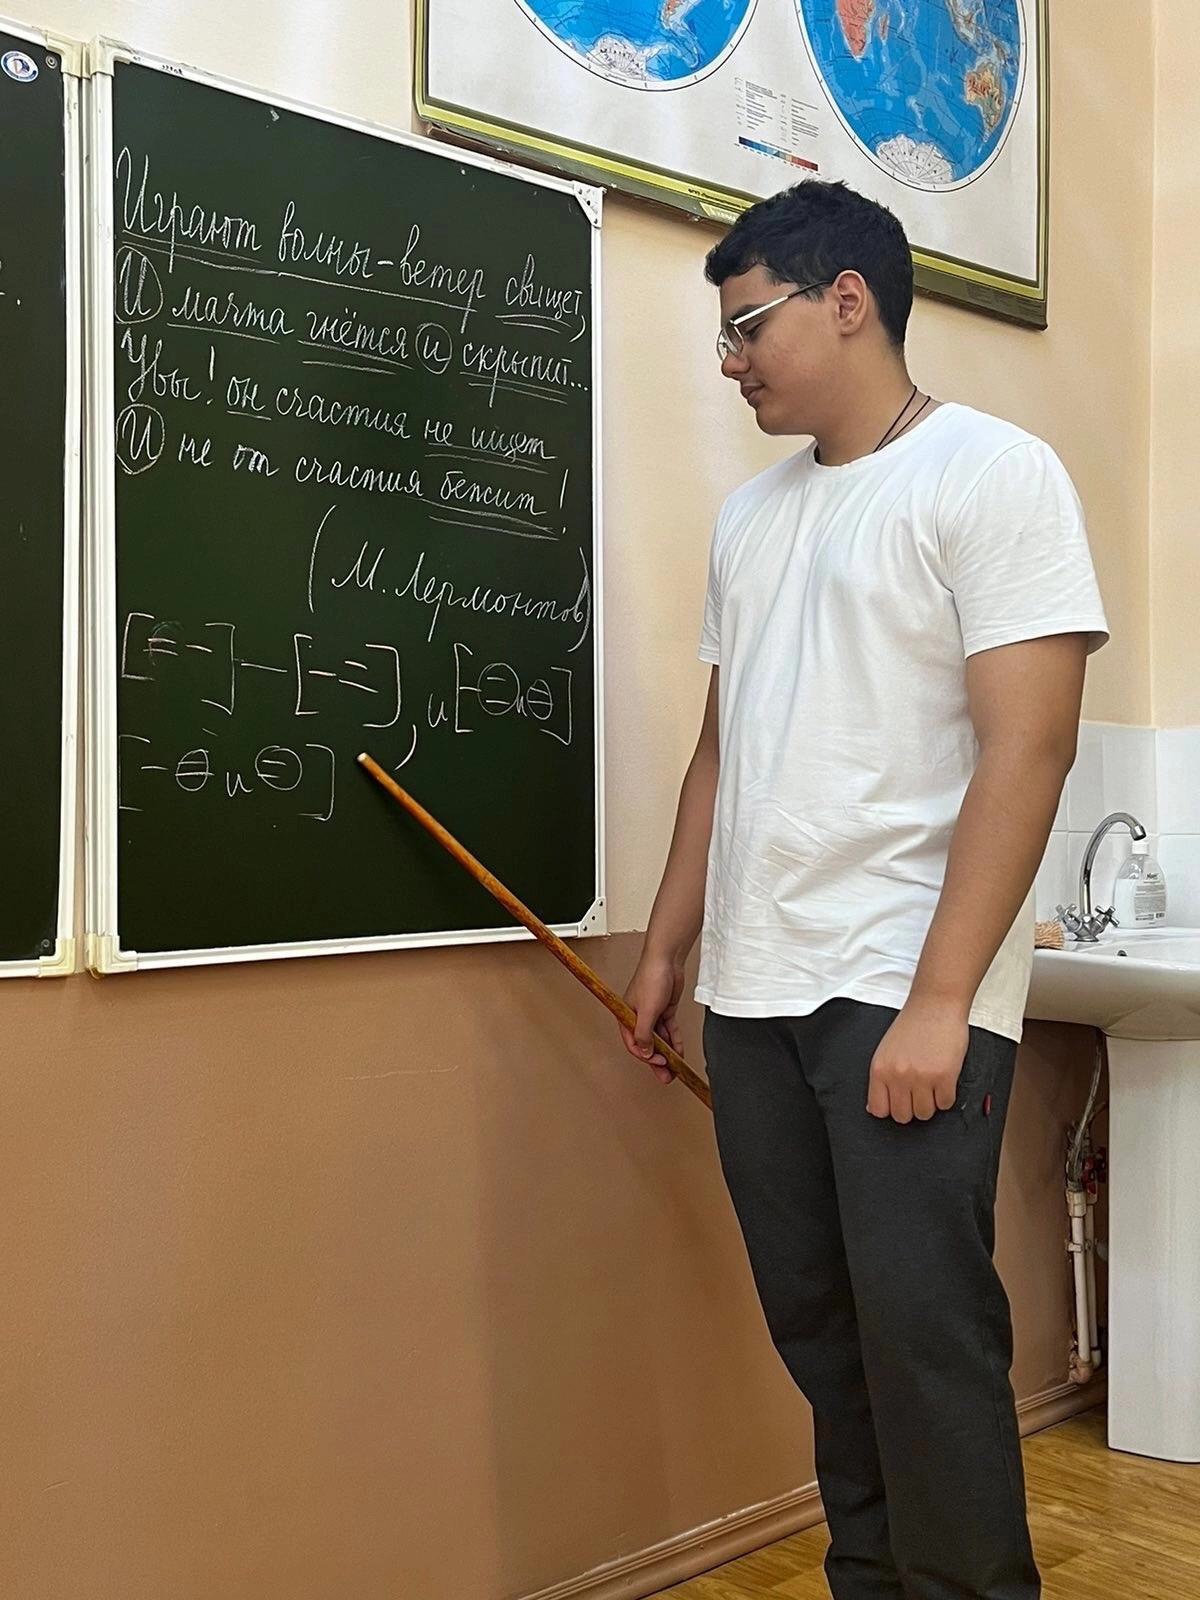 Играют волны - ветер свищет,
И мачта гнётся и скрыпит...
Увы! он счастия не ищет
И не от счастия бежит!
(М. Лермонтов)
[= -] — [- =], и [- = и =]
[- = и =]